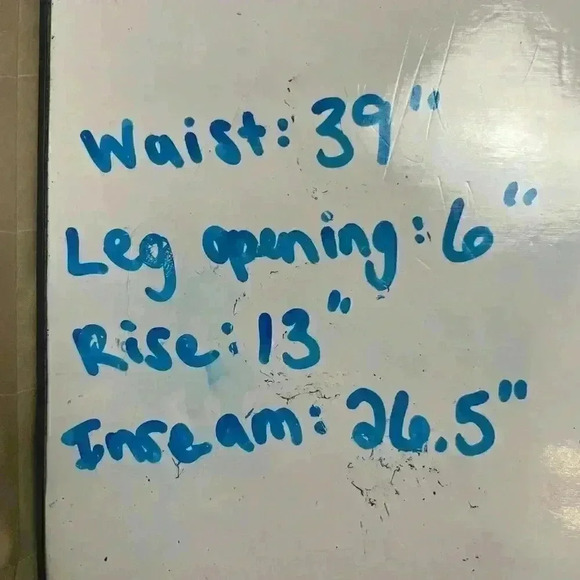 Waist: 39"
Leg opening: 6"
Rise: 13"
Inseam: 26.5"